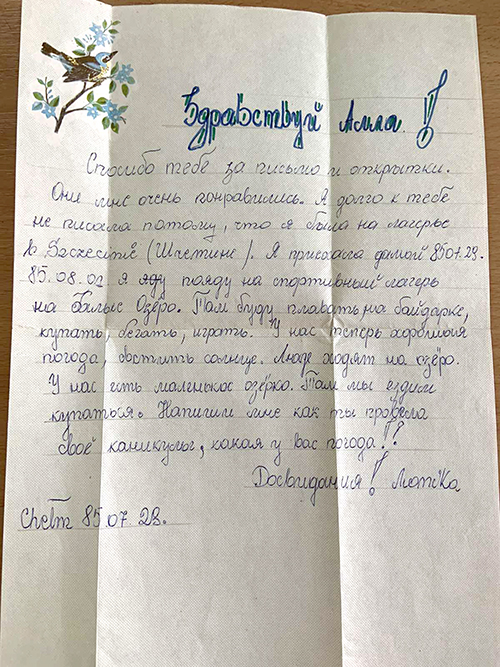 Здравствуй Алла!
Спосибо тебе за письмо и открытки.
Они мне очень понравились. Я долго к тебе
не писала потому, что я была на лагерье
в Szczecinie (Штетине). Я приехала дамой 85.07.28.
85.08.02 я пояду на спортивный лагерь
на Бялые Озёро. Там буду плавать на байдарке,
купать, бегать, играть. У нас теперь хорошая
погода, свєтить солнце. Люде ходят на озёро.
У нас есть маленькое озёрко. Там мы ездим
купаться. Напиши мне как ты провела
своё каникулы, какая у вас погода!?
Досвидания!
Chełm 85.07.28.